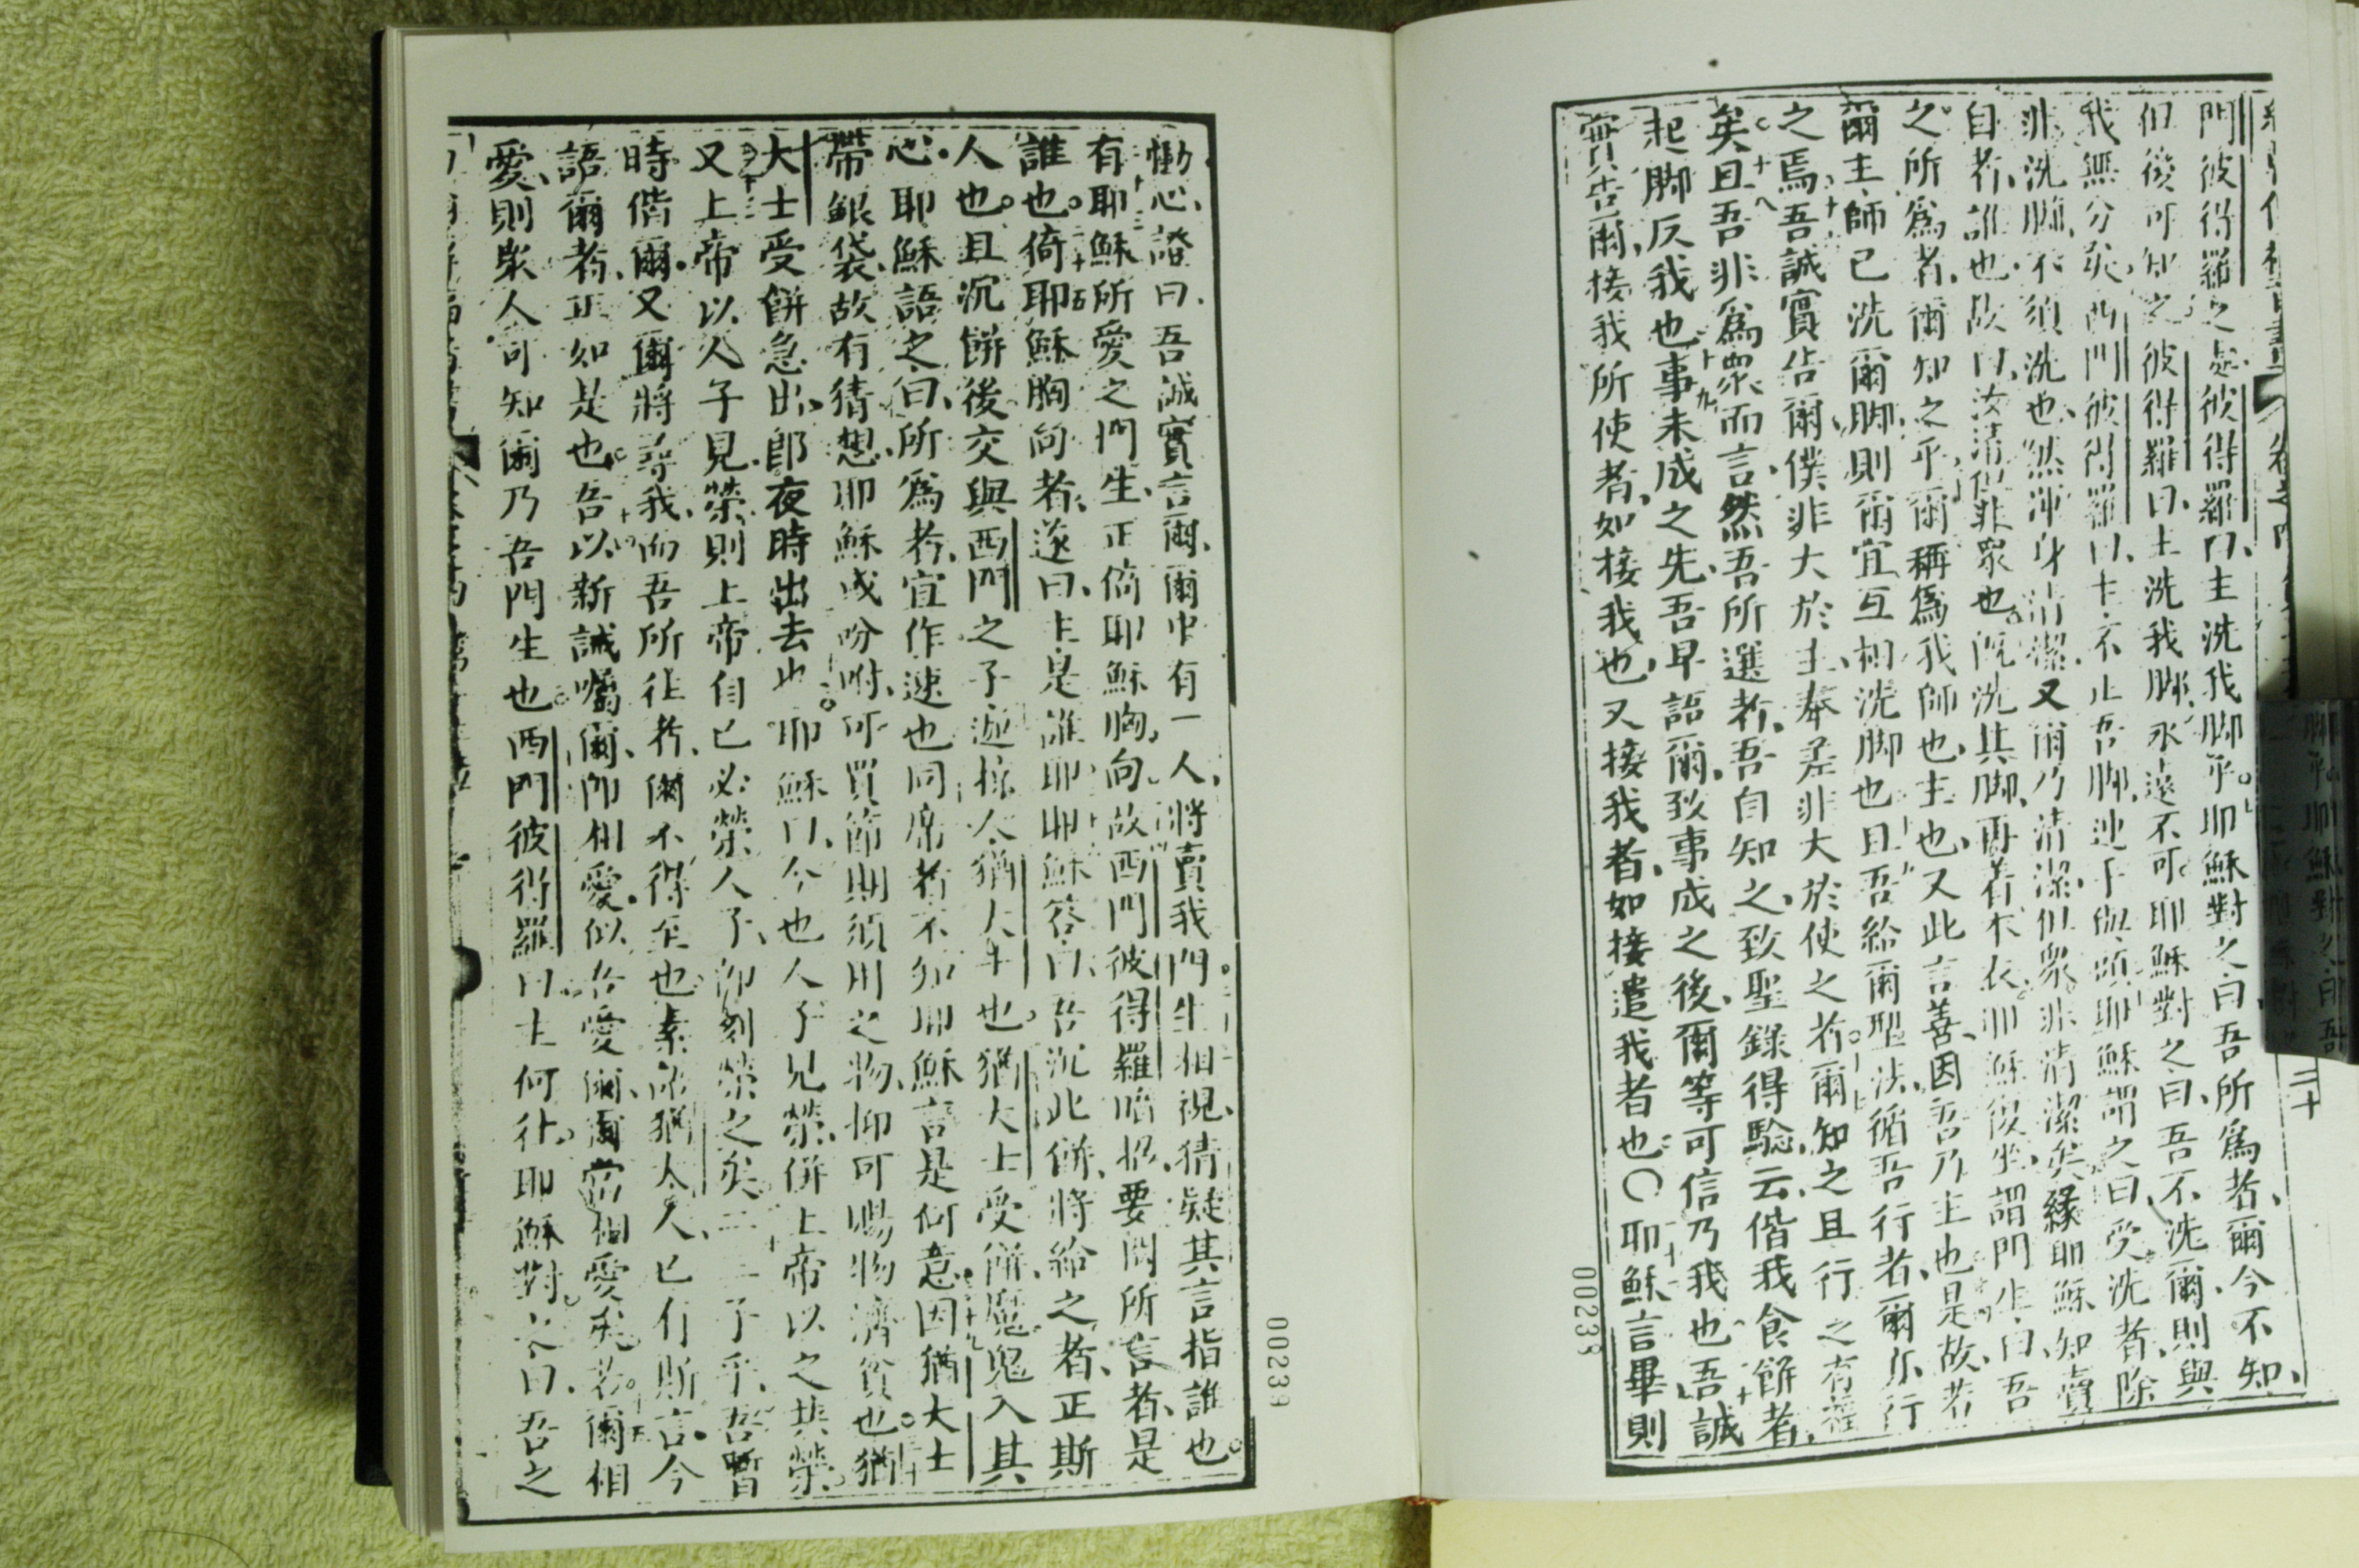 門彼得羅之處彼得羅曰主洗我脚乎耶穌對之曰吾所爲者爾今不知
但後可知之彼得羅曰主洗我脚永遠不可耶穌對之曰吾不洗爾則與
我無分矣西門彼得羅曰主不止吾脚連手與頭耶穌謂之曰受洗者除
非洗脚不須洗也然渾身清潔又爾乃清潔但衆非清潔矣緣耶穌知賣
自者誰也故曰汝清但非衆也既洗其脚再着本衣耶穌復坐謂門生曰吾
之所爲者爾知之乎爾稱爲我師也主也又此言善因吾乃主也是故若
爾主師已洗爾脚則爾宜互相洗脚也且吾給爾聖法循吾行者爾尒行
之焉吾誠實告爾僕非大於主奉差非大於使之者爾知之且行之有
矣且吾非爲衆而言然吾所選者吾自知之致聖錄得驗云偕我食餅者
起脚反我也事未成之先吾早語爾致事成之後爾等可信乃我也吾誠
實告爾接我所使者如接我也又接我者如接遣我者也〇耶穌言畢則
二十
00238
慟心證曰吾誠實言爾爾中有一人將賣我門生相視猜疑其言指誰也
有耶穌所愛之門生正倚耶穌胸向故西門彼得羅暗招要問所言者是
誰也倚耶穌胸向者遂曰主是誰耶耶穌答曰吾沉此餅將給之者正斯
人也且沉餅後交與西門之子猶大士也猶大士受餅魔鬼入其
心耶穌語之曰所爲者宜作速也同席者不知耶穌言是何意因猶大士
帶銀袋故有猜想耶穌或吩咐可買節期須用之物抑可賜物濟貧也猶
大士受餅急出郎夜時出去也耶穌曰今也人子見榮併上帝以之共榮
又上帝以人子見榮則上帝自己必榮人子卽刻榮之矣二三子乎吾暫
時偕爾爾又爾將尋我而吾所往者爾不得至也素爾猶大人已有斯言今
語爾者正如是也吾以新誡囑爾卽相愛似吾愛爾爾當相愛矣若爾相
愛則衆人可知爾乃吾門生也西門彼得羅曰主何往耶穌對之曰吾之
00239